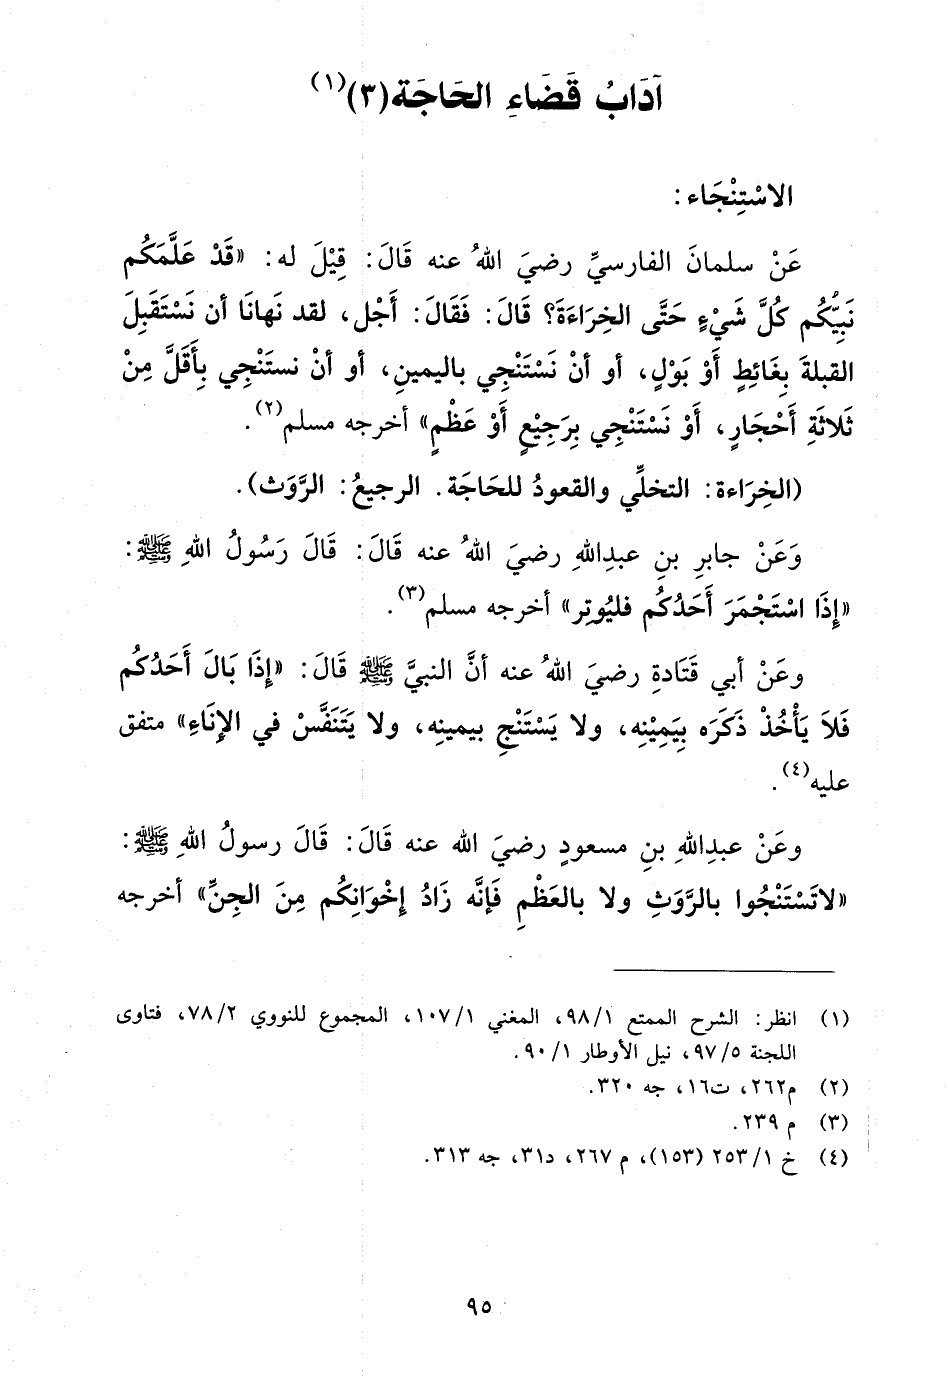 آدَابُ قَضَاءِ الحَاجَة (٣)(١)
الاسْتِنْجَاء :
عَنْ سلمانَ الفارسيِّ رضيَ اللهُ عنه قَالَ: قِيْلَ له: «قَدْ عَلَّمَكُم
نَبِيُّكُم كُلَّ شَيْءٍ حَتَّى الخِرَاءَةَ؟ قَالَ: فَقَالَ: أَجْل، لقد نَهانَا أن نَسْتَقَبِلَ
القبلةَ بِغَائِطٍ أَوْ بَوْلٍ، أو أنْ نَسْتَنْجِي باليمينِ، أو أنْ نستَنْجِي بِأَقَلَّ مِنْ
ثَلاثَةِ أَحْجَارٍ، أَوْ نَسْتَنْجِي بِرَجِيْعٍ أَوْ عَظْمٍ» أخرجه مسلم(٢).
(الخِرَاءة: التخلِّي والقعودُ للحَاجَة. الرجيعُ: الرَّوَث).
وَعَنْ جابرِ بنِ عبدِاللهِ رضيَ اللهُ عنه قَالَ: قَالَ رَسُولُ اللهِ ﷺ:
«إِذَا اسْتَجْمَرَ أَحَدُكُم فليُوتِر» أخرجه مسلم(٣).
وعَنْ أبي قَتَادةِ رضيَ اللهُ عنه أنَّ النبيَّ ﷺ قَالَ: «إِذَا بَالَ أَحَدُكُم
فَلاَ يَأْخُذْ ذَكَرَه بِيَمِيْنِه، ولا يَسْتَنْجِ بيمينِه، ولا يَتَنَفَّسْ في الإِنَاءِ» متفق
عليه(٤).
وعَنْ عبدِاللهِ بنِ مسعودٍ رضيَ الله عنه قَالَ: قَالَ رسولُ اللهِ ﷺ:
«لاتَسْتَنْجُوا بالرَّوَثِ ولا بالعَظْمِ فَإِنَّه زَادُ إِخْوَانِكُم مِنَ الجِنِّ» أخرجه
(١) انظر: الشرح الممتع ٩٨/١، المغني ١٠٧/١، المجموع للنووي ٧٨/٢، فتاوى
اللجنة ٩٧/٥، نيل الأوطار ٩٠/١.
(٢) م٢٦٢، ت١٦، جه ٣٢٠.
(٣) م ٢٣٩.
(٤) خ ٢٥٣/١ (١٥٣)، م ٢٦٧، د٣١، جه ٣١٣.
٩٥